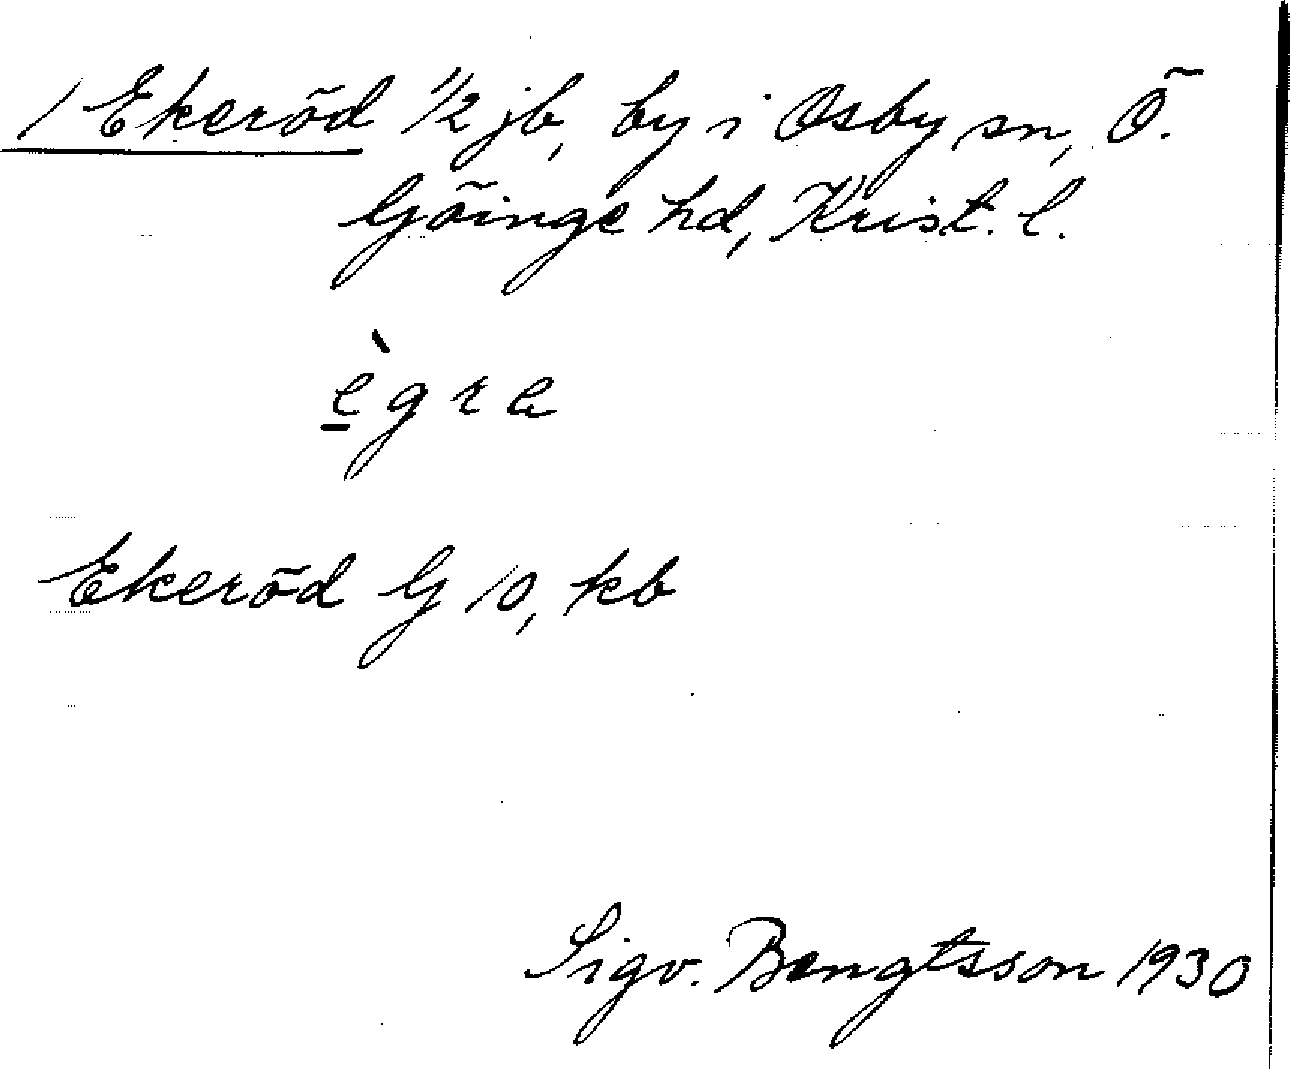 / Ekeröd 1/2 jb, by i Osby sn, Ö.
Göinge hd, Krist. l.
è̱gra
Ekeröd G 10, kb
Sigv. Bengtsson 1930